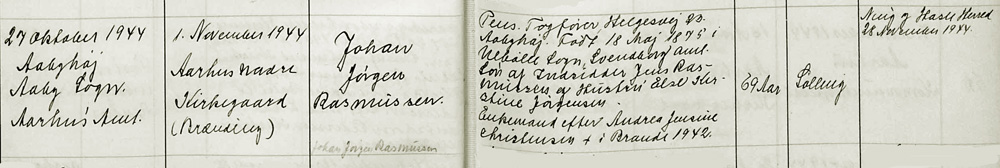 27 Oktober 1944
Aabyhøj
Aaby Sogn.
Aarhus Amt.
1. November 1944
Aarhus nadre
Kirkegaard
(Brænding)
Johan
Jørgen
Rasmussen.
Johan Jørgen Rasmussen
Pens. Togfører Helgesvej 23.
Aabyhøj. Født 18 Maj 1875 i
Ulbølle Sogn, Svendborg Amt.
Søn af Indsidder Jens Ras-
mussen og Hustru Else Kir-
stine Jørgensen.
Enkemand efter Andrea Jensine
Christensen + i Brande 1942.
69 Aar
Sølling
Ning og Hasle Herred
28 November 1944.